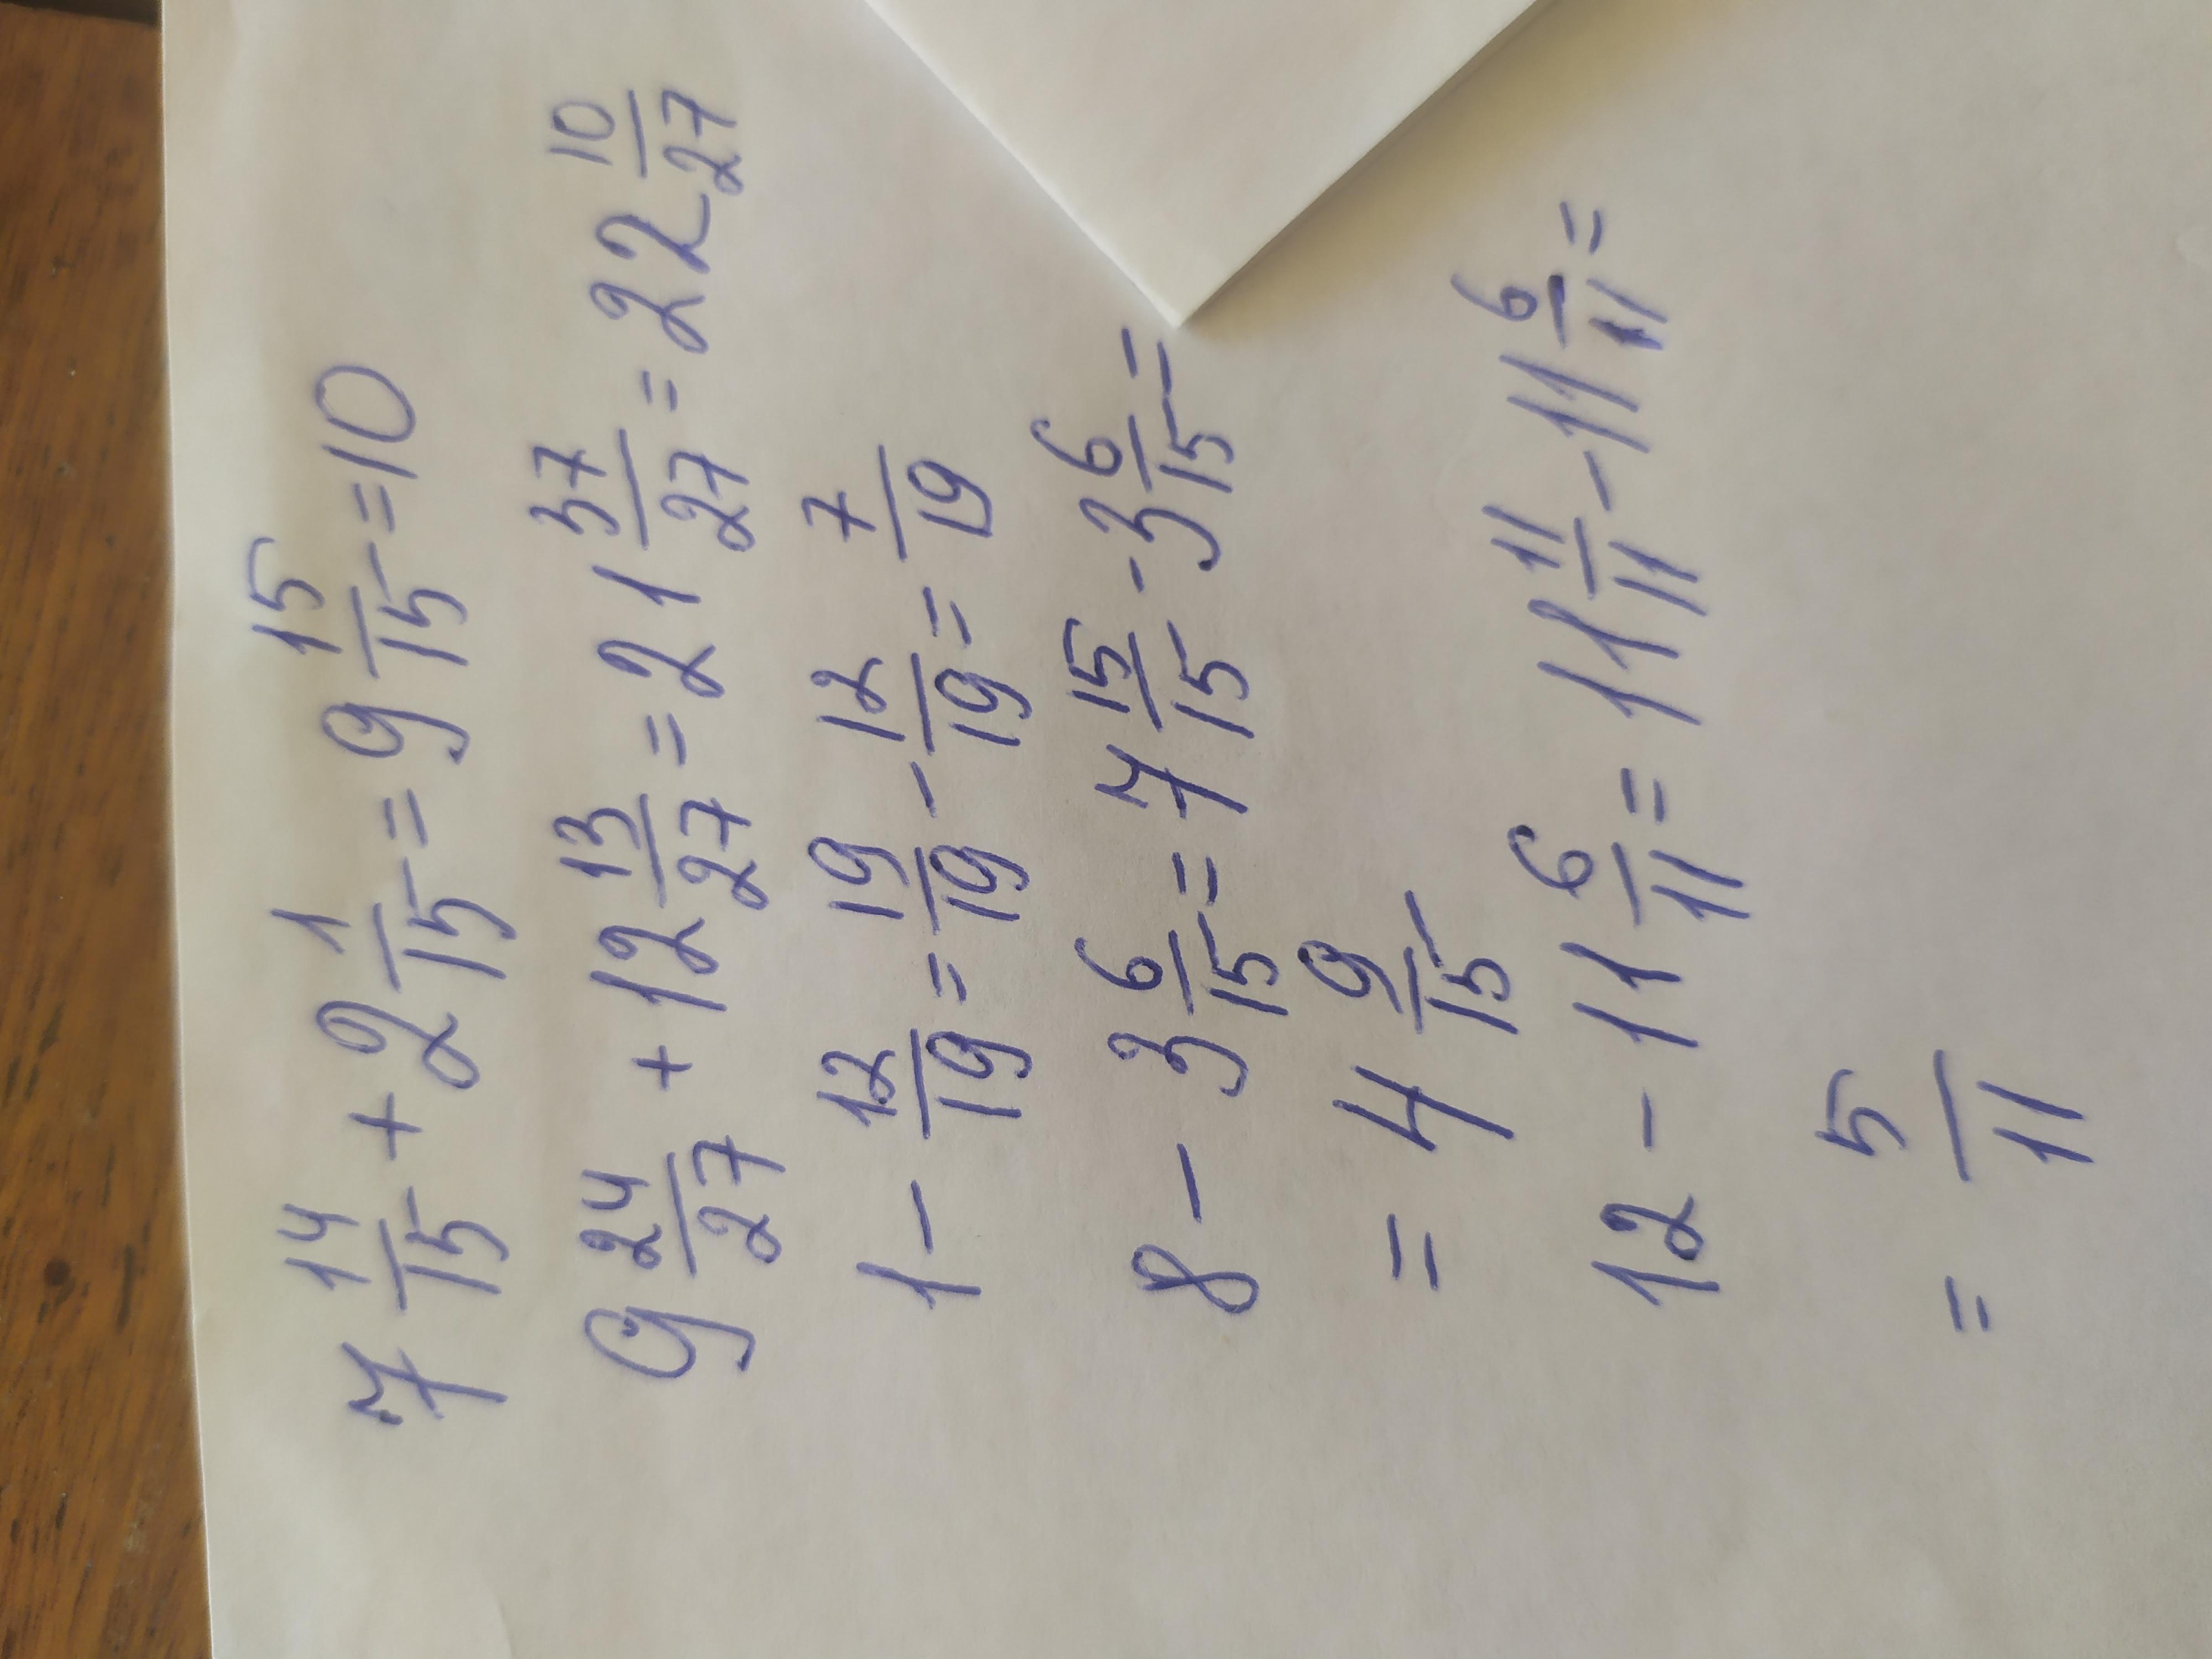 7 14/15 + 2 1/15 = 9 15/15 = 10
9 24/27 + 12 13/27 = 21 37/27 = 22 10/27
1 - 12/19 = 19/19 - 12/19 = 7/19
8 - 3 6/15 = 7 15/15 - 3 6/15 =
= 4 9/15
12 - 11 6/11 = 11 11/11 - 11 6/11 =
= 5/11